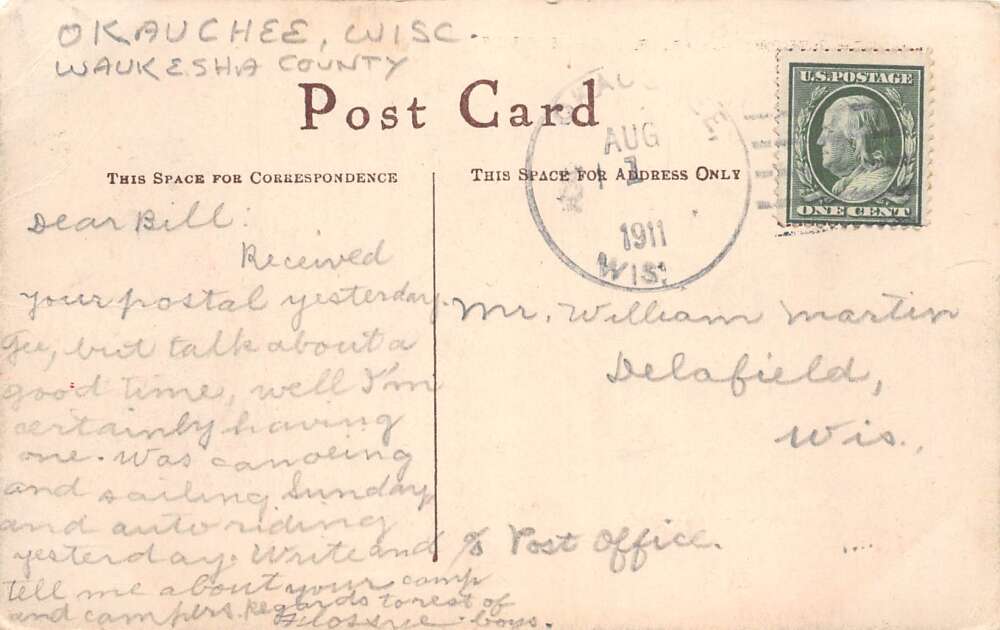 OKAUCHEE, WISC.
WAUKESHA COUNTY
Post Card
THIS SPACE FOR CORRESPONDENCE
THIS SPACE FOR ADDRESS ONLY
AUG
1
1911
WIS.
U.S. POSTAGE
ONE CENT
Dear Bill:
Received
your postal yesterday.
Gee, but talk about a
good time, well I'm
certainly having
one. Was canoeing
and sailing Sunday
and auto riding
yesterday. Write and
tell me about your camp
and campers. Regards to rest of
Flossie boys.
Mr. William Martin
Delafield,
Wis.,
c/o Post Office.